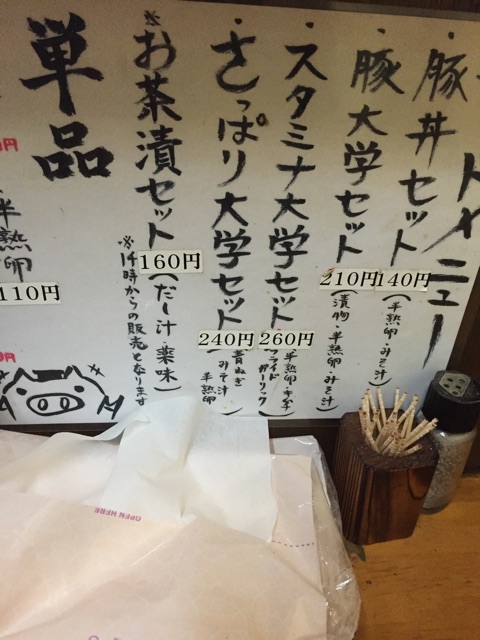 トメニュー
・豚丼セット
140円
(半熟卵・みそ汁)
・豚大学セット
210円
(漬物・半熟卵・みそ汁)
・スタミナ大学セット
260円
(半熟卵・キムチ
フライドガーリック)
・さっぱり大学セット
240円
青ねぎ
みそ汁
半熟卵
※お茶漬セット
160円
(だし汁・薬味)
※14時からの販売となります
単品
半熟卵
110円
OPEN HERE